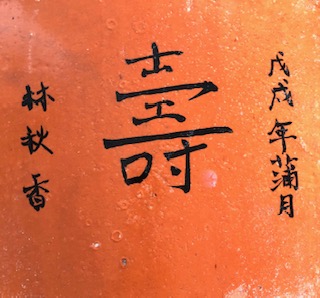 戊戌年蒲月
壽
林秋香